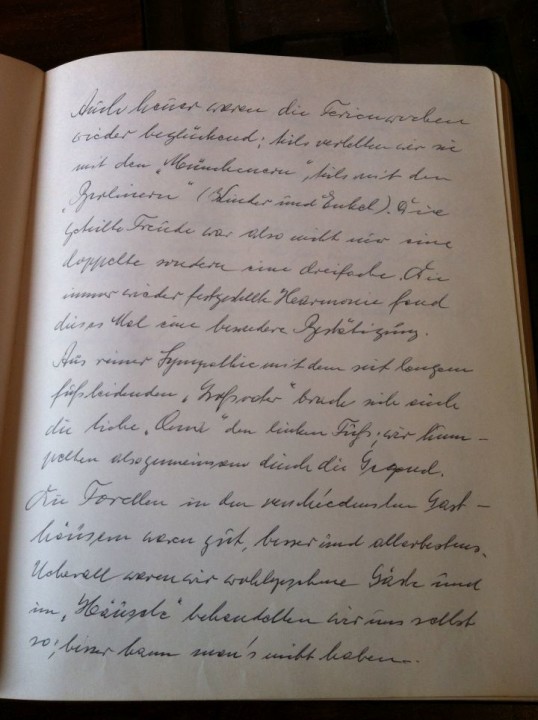 Auch heuer waren die Ferienwochen
wieder beglückend; teils verlebten wir sie
mit den „Münchenern", teils mit den
„Berlinern" (Kinder und Enkel). Die
geteilte Freude war also nicht nur eine
doppelte sondern eine dreifache. Die
immer wieder festgestellte Harmonie fand
dieses Mal eine besondere Bestätigung.
Aus reiner Sympathie mit dem seit langem
fußleidenden „Großvater" brach sich auch
die liebe „Oma" den linken Fuß; wir hum-
pelten also gemeinsam durch die Gegend.
Die Forellen in den verschiedensten Gast-
häusern waren gut, besser und allerbestens.
Ueberall waren wir wohlgesehene Gäste und
im „Häusele" behandelten wir uns selbst
so; besser kann man's nicht haben.